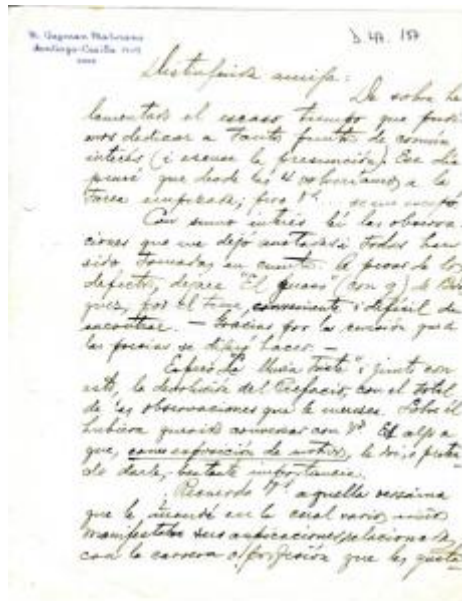 M. Guzmán Maturana
Santiago-Casilla
D. 47. 157
Distinguida amiga:
De sobra he
lamentado el escaso tiempo que pudi
mos dedicar a tanto punto de común
interés (i excuse la presunción). Ese día
pensé que desde las 4 volveríamos a la
tarea empezada; pero Vd. se me escapó
Con sumo interés leí las observa
ciones que me dejó anotadas i todas han
sido tomadas en cuenta. A pesar de los
defectos, dejaré "El guaso" (con g) de
quez, por el tema, conveniente i difícil de
encontrar. — Gracias por la revisión que a
las poesías se dignó hacer. —
Espero "La Mujer Fuerte" i junto con
esto, la devolución del Prefacio, con el total
de las observaciones que le merezca. Sobre él
hubiera querido conversar con Vd. Es algo a
que, como exposición de motivos, le doi, o preten
do darle, bastante importancia.
Recuerda Vd. aquella
que le mandé en la cual varios niños
manifestaban sus aspiraciones relacionadas
con la carrera o profesión que les gusta